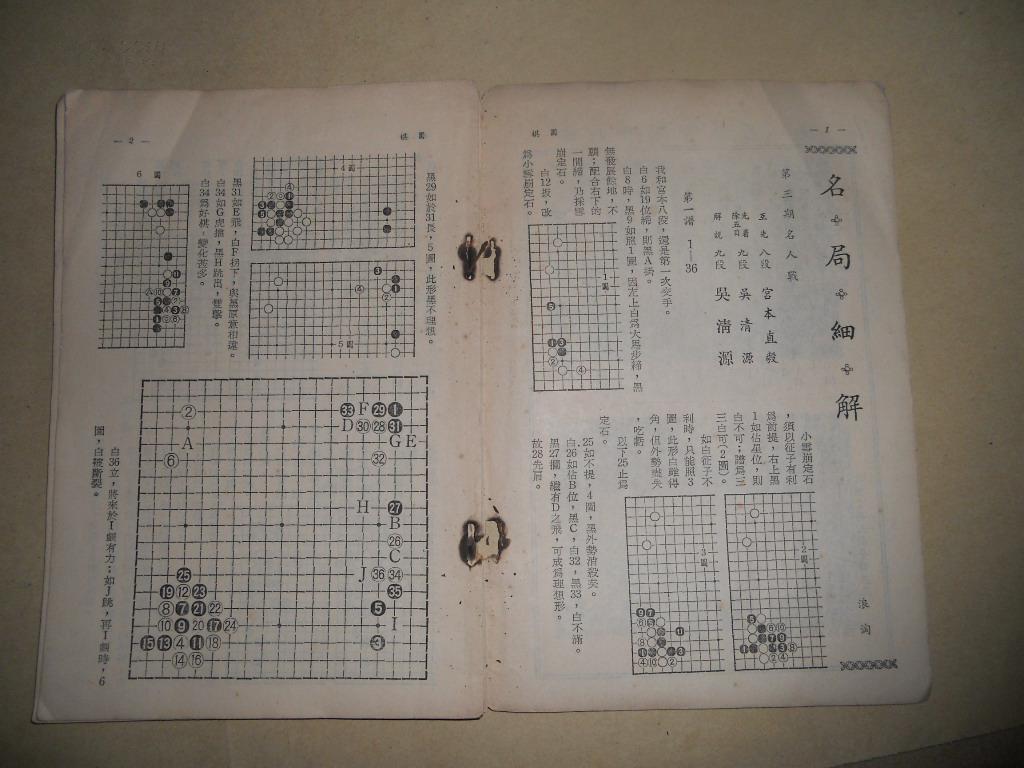 — 1 —
圍棋
名局細解
浪淘
第三期名人戰
互先 八段 宮本直毅
先着 九段 吳清源
除五目
解說 九段 吳清源
第一譜 1—36
我和宮本八段,還是第一次交手。
白6如19位締,則黑A掛。
白8時,黑9如照1圖,因左上白爲大馬步締,黑
無發展餘地,不
願;配合右下的
一間締,乃採雪
崩定石。
白12扳,改
爲小雪崩定石。
1圖
小雪崩定石
,須以征子有利
爲前提,右上黑
1如佔星位,則
白不可;譜爲三
三白可(2圖)。
如白征子不
利時,只能照3
圖,此形白雖得
角,但外勢盡失
,吃虧。
以下25止爲
定石。
25如不提,4圖,黑外勢消殺矣。
白26如佔B位,黑C,白32,黑33,白不滿。
黑27攔,繼有D之飛,可成爲理想形。
故28先肩。
2圖
3圖
— 2 —
圍棋
黑29如於31長,5圖,此形黑不理想。
4圖
5圖
黑31如E飛,白F拐下,與黑原意相違。
白34如G虎擋,黑H跳出,雙擊。
白34爲好棋,變化甚多。
6圖
A
D
F
G
E
H
B
C
J
I
白36立,將來於I頗有力;如J跳,再I頗時,6
圖,白被斷裂。